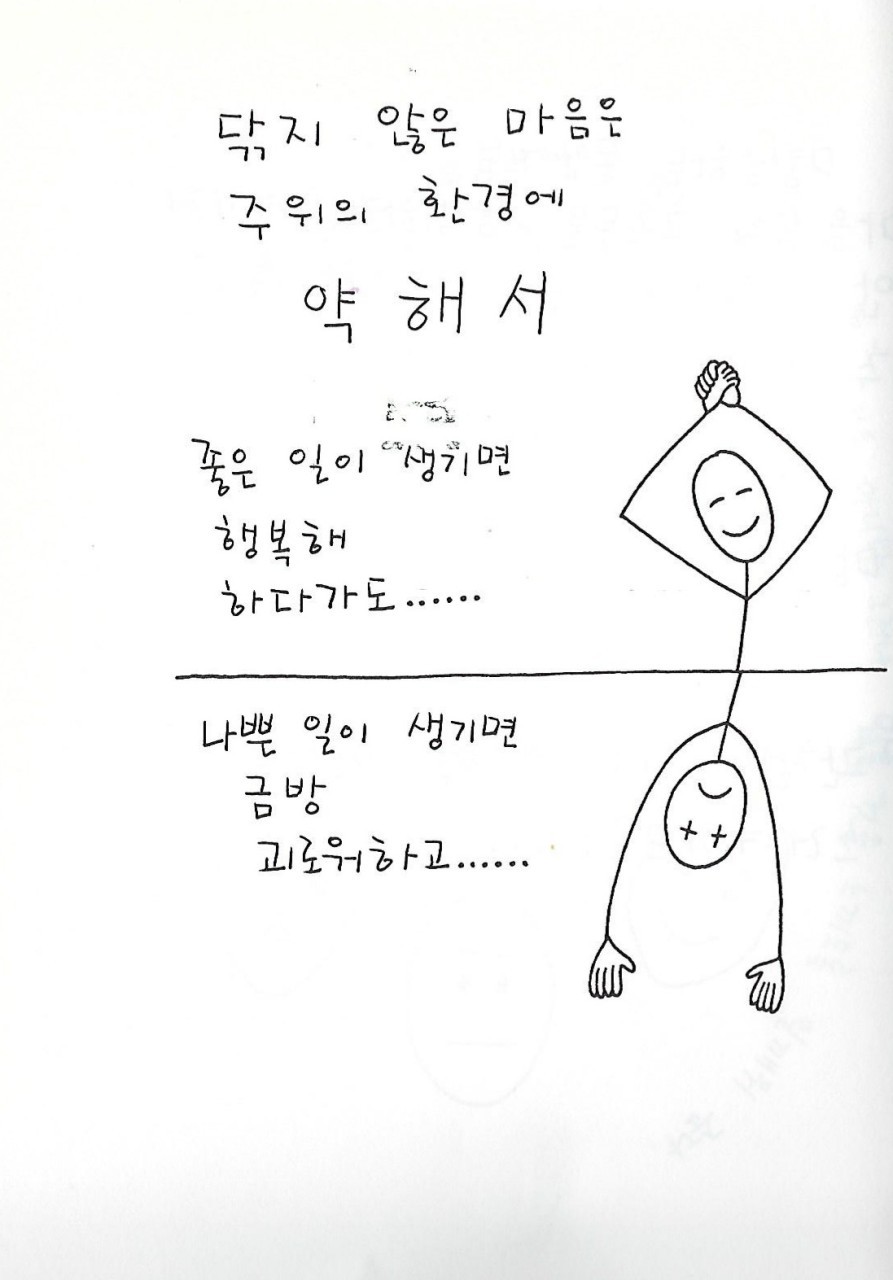 닦지 않은 마음은
주위의 환경에
약해서
좋은 일이 생기면
행복해
하다가도......
나쁜 일이 생기면
금방
괴로워하고......